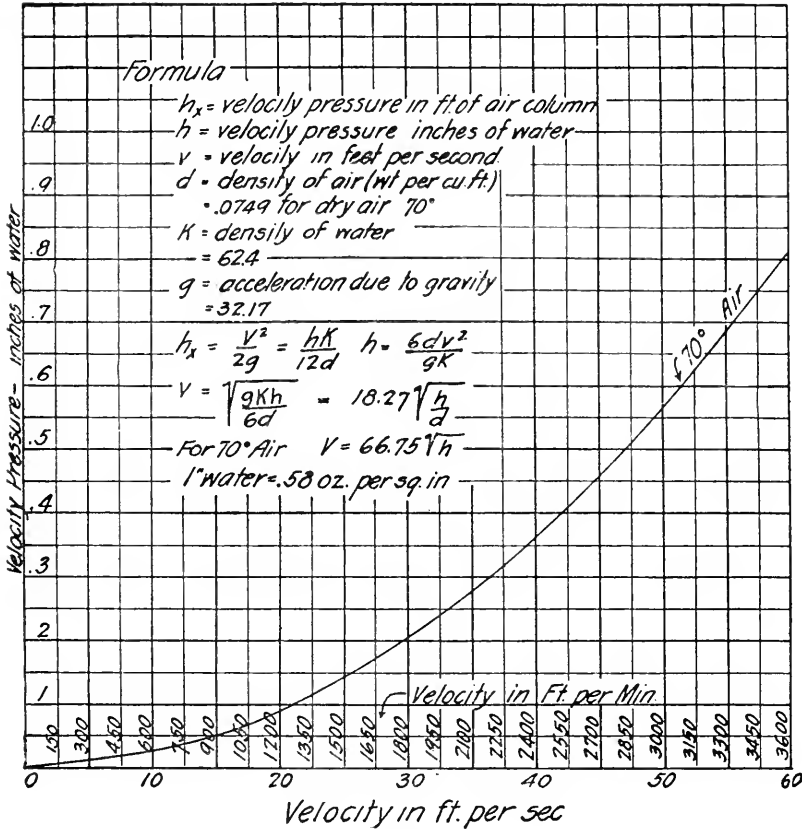 Formula
hₓ = velocity pressure in ft. of air column
h = velocity pressure inches of water
v = velocity in feet per second
d = density of air (wt per cu. ft.)
= .0749 for dry air 70°
K = density of water
= 62.4
g = acceleration due to gravity
= 32.17
hₓ = V²/2g = hK/12d h = 6dv²/gK
V = √(gKh/6d) = 18.27√(h/d)
For 70° Air V = 66.75√h
1" water = .58 oz. per sq. in
70° Air
Velocity Pressure - inches of water
1.0
.9
.8
.7
.6
.5
.4
.3
2
1
Velocity in Ft. per Min.
150 300 450 600 750 900 1050 1200 1350 1500 1650 1800 1950 2100 2250 2400 2550 2700 2850 3000 3150 3300 3450 3600
0 10 20 30 40 50 60
Velocity in ft. per sec